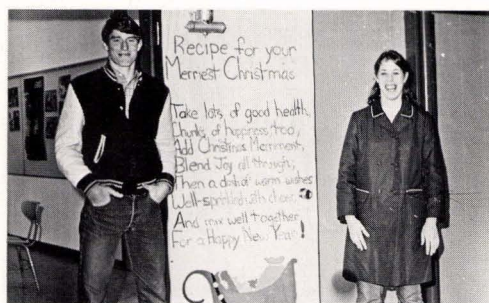 Recipe for your
Merriest Christmas
Take lots of good health,
Chunks of happiness too,
Add Christmas Merriment,
Blend Joy all through,
Then a dash of warm wishes
Well-sprinkled with cheer,
And mix well together
For a Happy New Year!